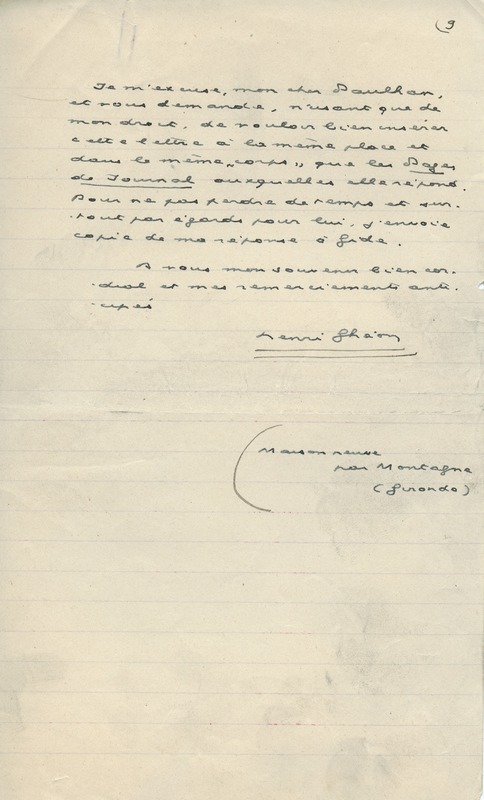 (9
Je m'excuse, mon cher Paulhan,
et vous demande, n'usant que de
mon droit, de vouloir bien insérer
cette lettre à la même place et
dans le même "corps", que les Pages
de Journal auxquelles elle répond.
Pour ne pas perdre de temps et sur-
-tout par égards pour lui, j'envoie
copie de ma réponse à Gide.
A vous mon souvenir bien cor-
-dial et mes remerciements anti-
-cipés
Henri Ghéon
Maison neuve
par Montagne
(Gironde)